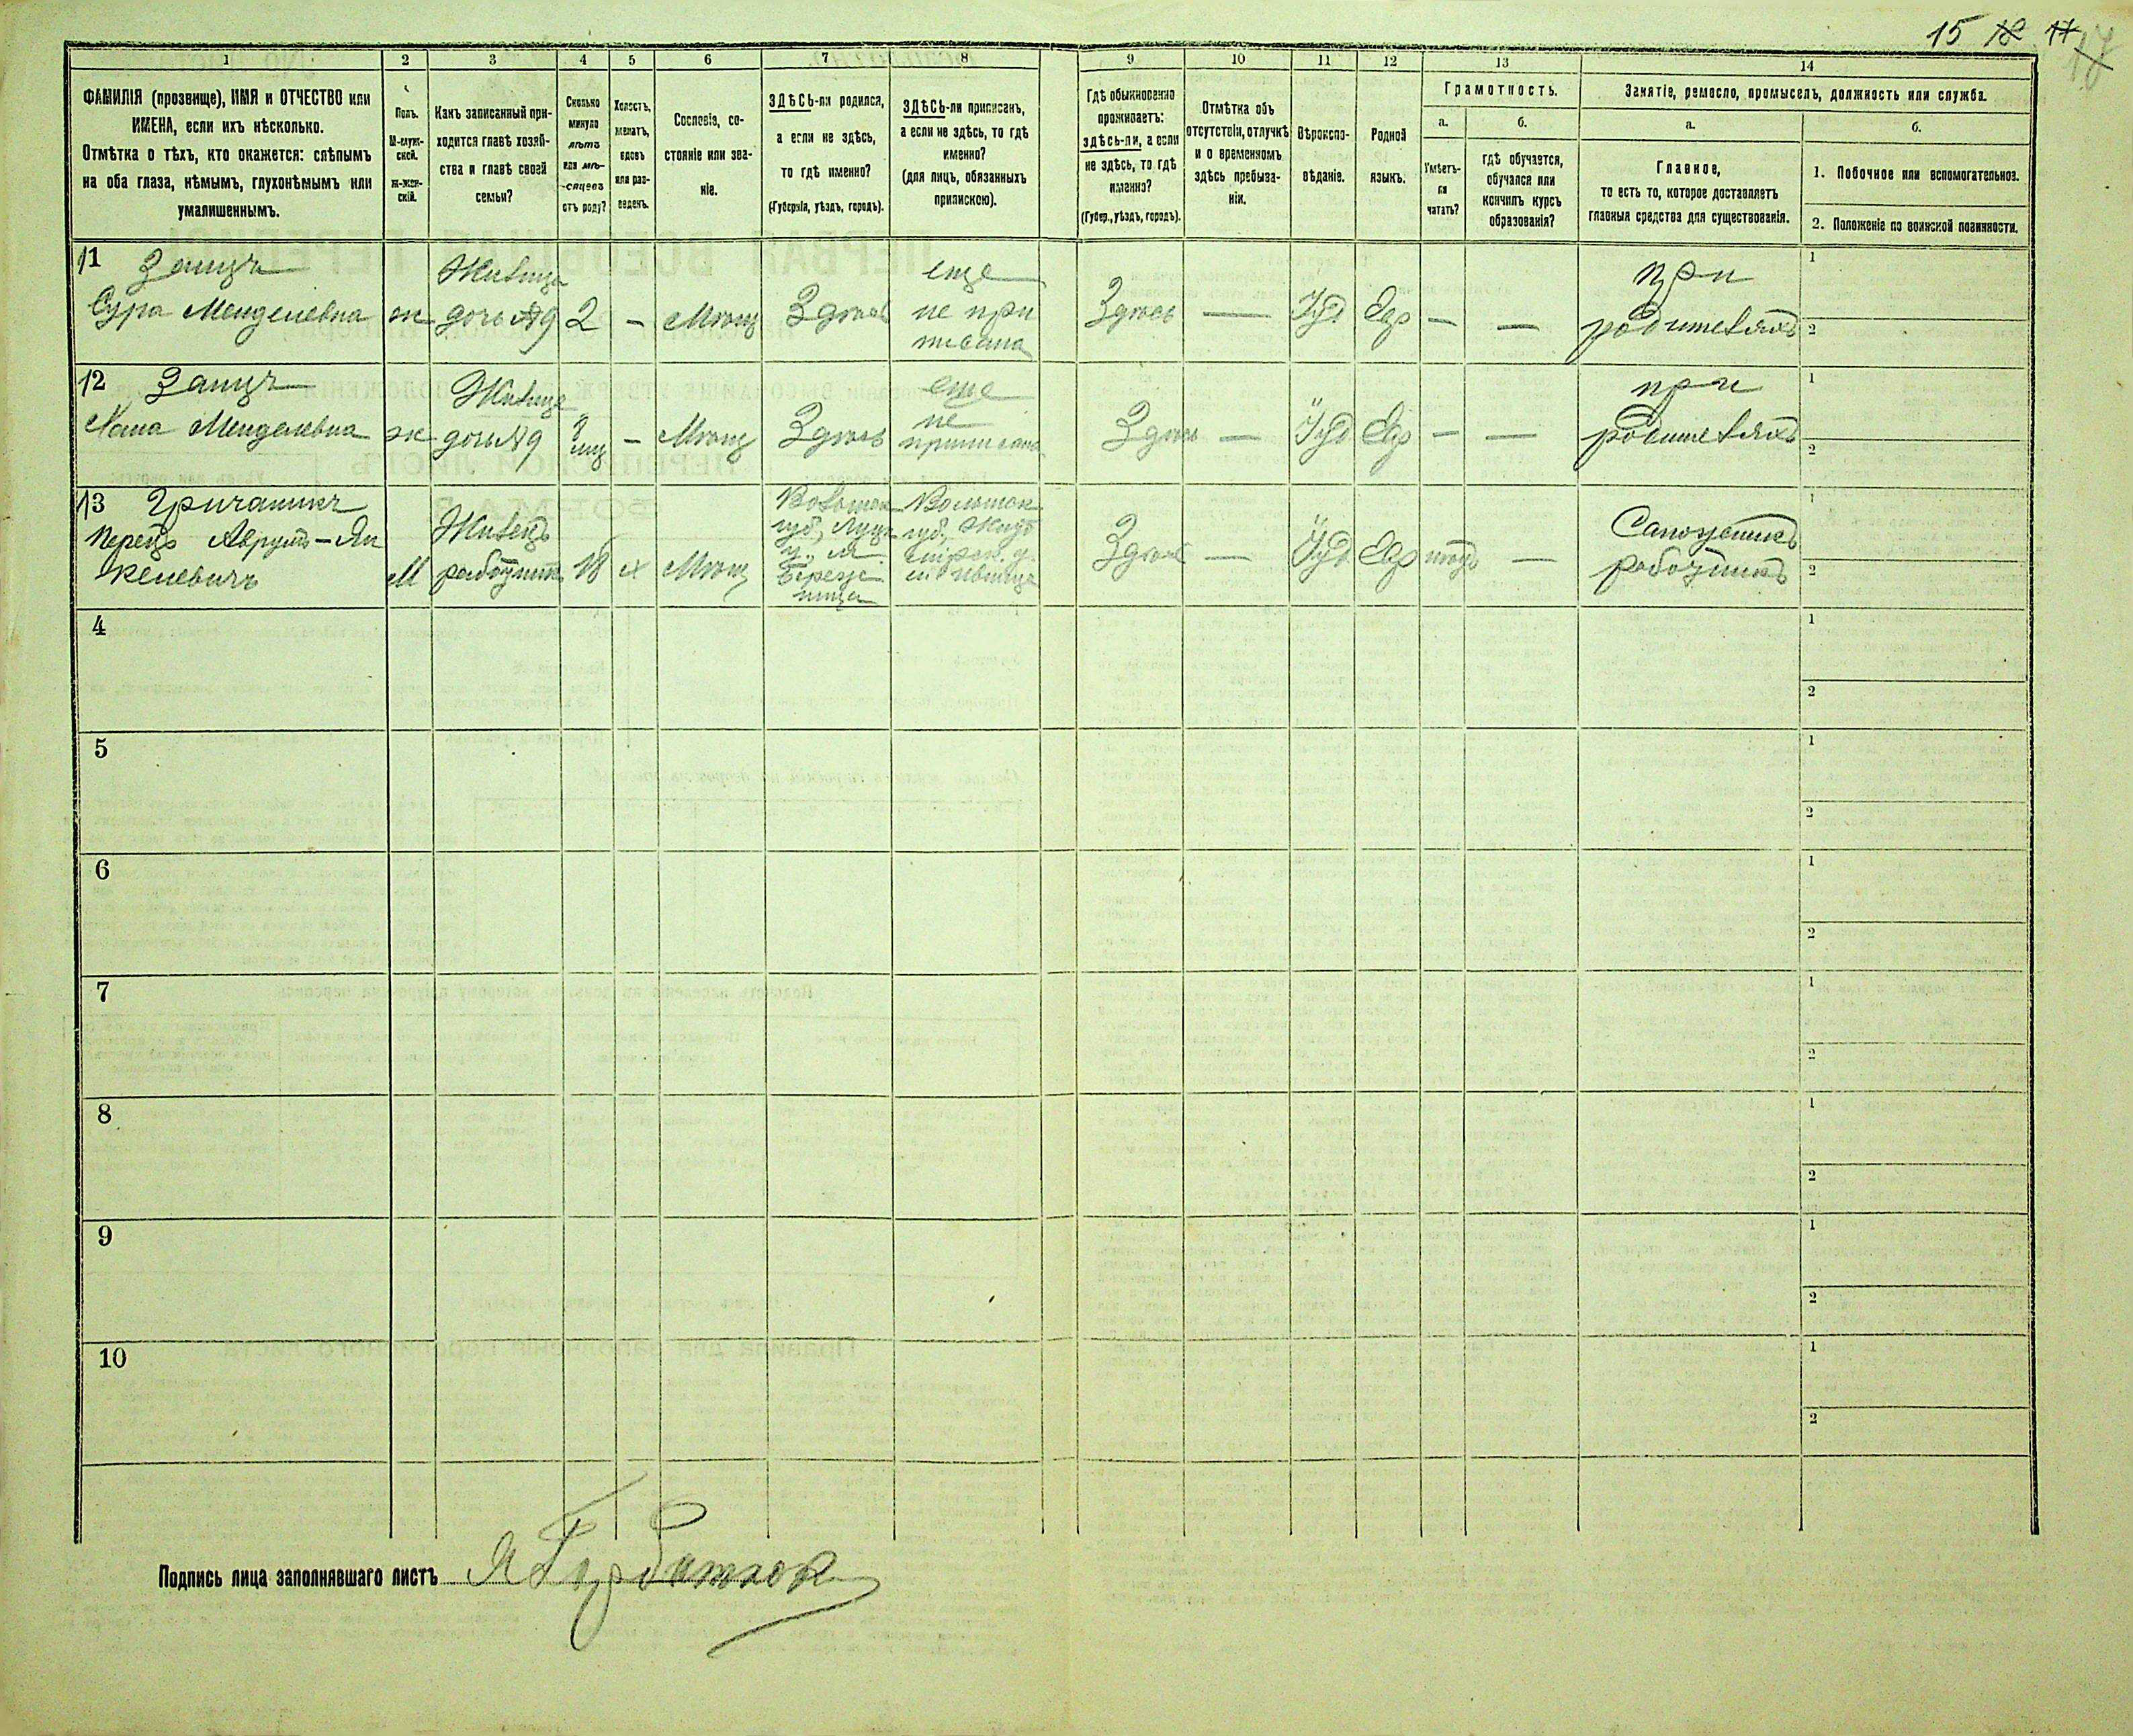 15 18 17
1 2 3 4 5 6 7 8 9 10 11 12 13 14
ФАМИЛІЯ (прозвище), ИМЯ и ОТЧЕСТВО или
ИМЕНА, если ихъ нѣсколько.
Отмѣтка о тѣхъ, кто окажется: слѣпымъ
на оба глаза, нѣмымъ, глухонѣмымъ или
умалишеннымъ.
Полъ.
М-муж-
ской.
ж-жен-
скій.
Какъ записанный при-
ходится главѣ хозяй-
ства и главѣ своей
семьи?
Сколько
минуло
лѣтъ
или мѣ-
сяцевъ
отъ роду?
Холостъ,
женатъ,
вдовъ
или раз-
веденъ.
Сословіе, со-
стояніе или зва-
ніе.
ЗДѢСЬ-ли родился,
а если не здѣсь,
то гдѣ именно?
(Губернія, уѣздъ, городъ).
ЗДѢСЬ-ли приписанъ,
а если не здѣсь, то гдѣ
именно?
(для лицъ, обязанныхъ
припискою).
Гдѣ обыкновенно
проживаетъ:
здѣсь-ли, а если
не здѣсь, то гдѣ
именно?
(Губер., уѣздъ, городъ).
Отмѣтка объ
отсутствіи, отлучкѣ
и о временномъ
здѣсь пребыва-
ніи.
Вѣроиспо-
вѣданіе.
Родной
языкъ.
Грамотность.
а.
Умѣетъ-
ли
читать?
б.
гдѣ обучается,
обучался или
кончилъ курсъ
образованія?
Занятіе, ремесло, промыселъ, должность или служба.
а.
Главное,
то есть то, которое доставляетъ
главныя средства для существованія.
б.
1. Побочное или вспомогательное.
2. Положеніе по воинской повинности.
11 Заицъ
Сура Менделевна
ж
Жилица
дочь №9
2
—
Мѣщ
Здѣсь
еще
не при
писана
Здѣсь
—
Іуд
Евр
—
—
при
родителяхъ
1
2
12 Заицъ
Менделевна
ж
Жилица
дочь №9
—
Мѣщ
Здѣсь
еще
не
приписана
Здѣсь
—
Іуд
Евр
—
—
при
родителяхъ
1
2
13 Гричаникъ
Перецъ Аврумъ-Ян
келевичъ
М
Жилецъ
работникъ
18
х
Мѣщ
Волынск
губ., Луцк
у., м.
Березе
ница
Волынск
губ.,
Здѣсь
—
Іуд
Евр
—
Сапожникъ
работникъ
1
2
4
1
2
5
1
2
6
1
2
7
1
2
8
1
2
9
1
2
10
1
2
Подпись лица заполнявшаго листъ